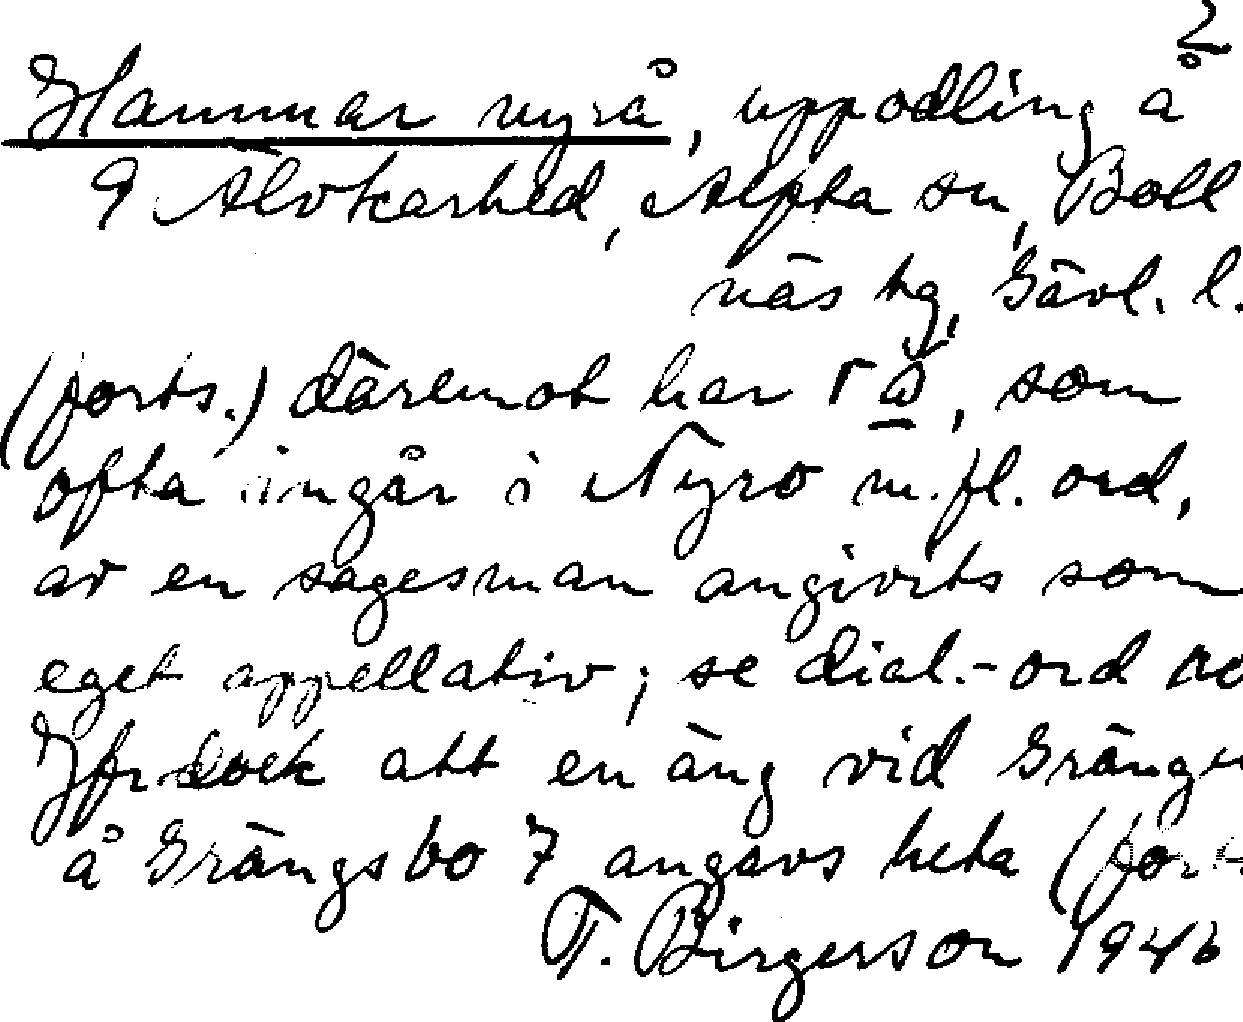 2
Hammar nyrå, uppodling å
9 Älvkarhed, Alfta sn, Boll
näs tg, Gävl. l.
(forts.) däremot har r å, som
ofta ingår i Nyro m.fl. ord,
av en sagesman angivits som
eget appellativ; se dial.-ord
Jfr dock att en äng vid Gränge
å Grängsbo 7 angavs heta (forts
T. Birgerson 1946